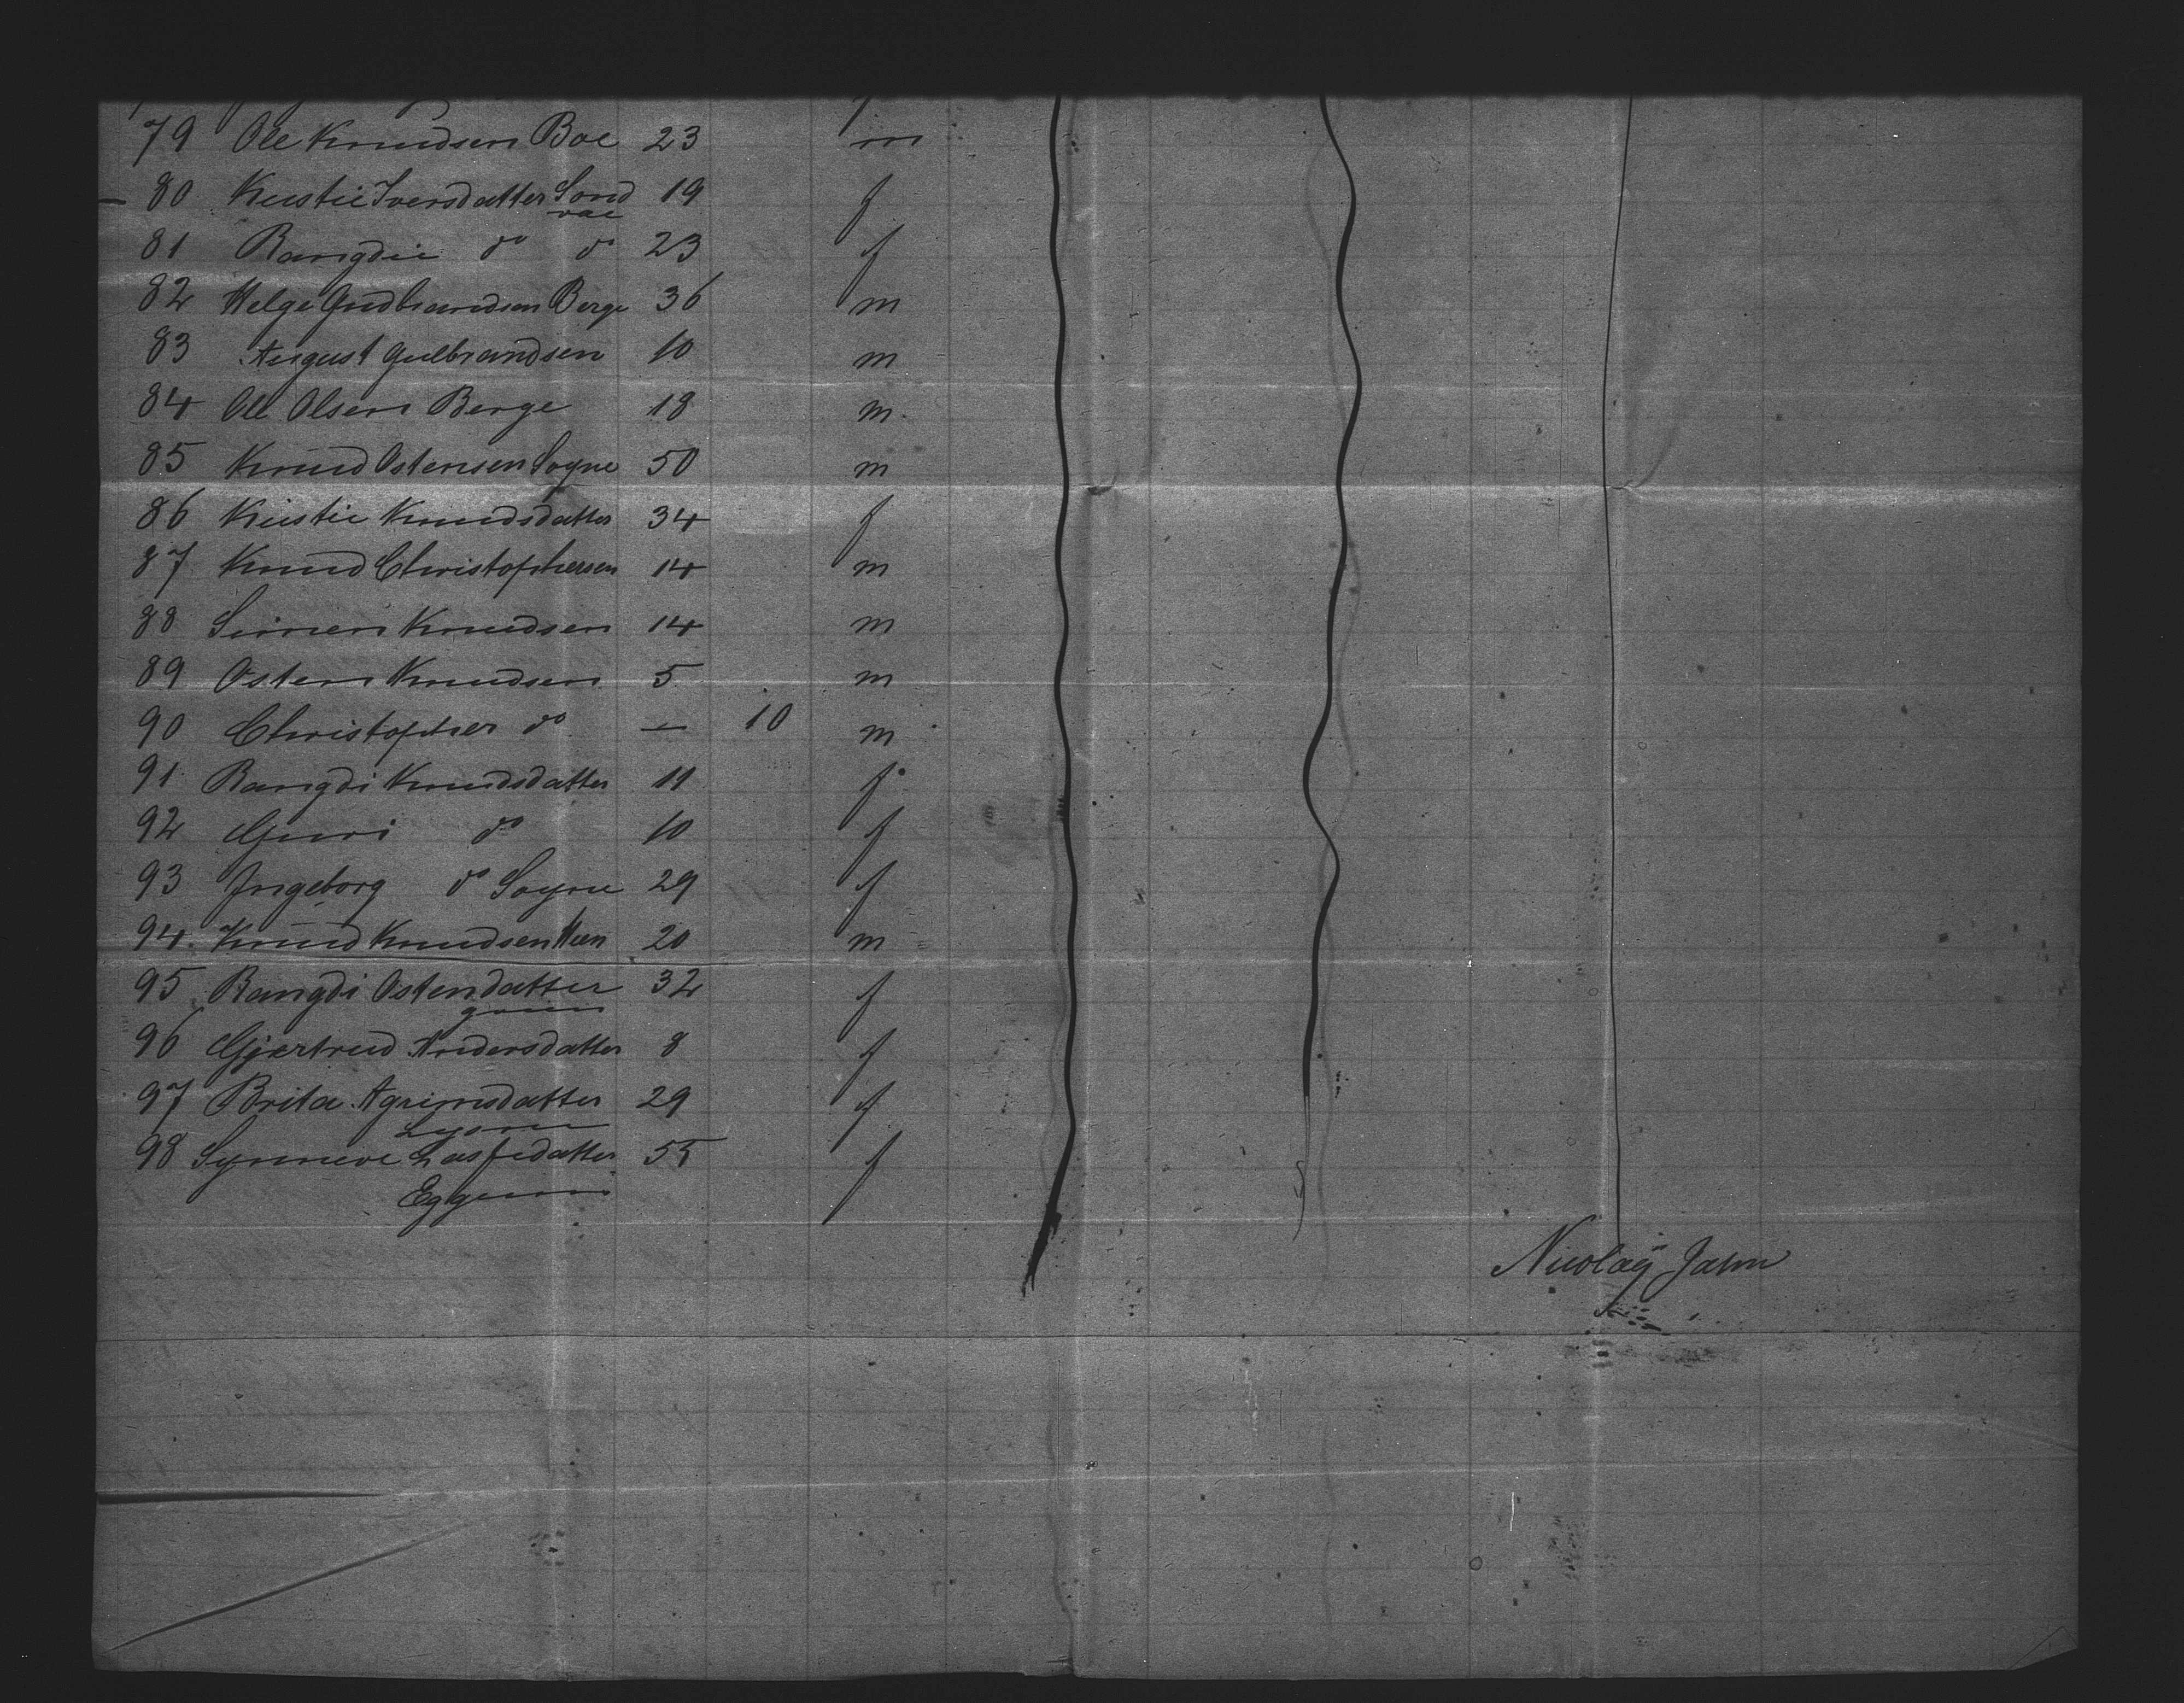 79 Ole Knudsen Boe 23 m
80 Kustie Iversdatter Sond 19 f
vae
81 Rangdie do do 23 f
82 Helge Gudbrandsen Berge 36 m
83 August Gulbrandsen 10 m
84 Ole Olsen Berge 18 m
85 Knud Ostensen Sogne 50 m
86 Kirstie Knudsdatter 34 f
87 Knud Christophersen 14 m
88 Simen Knudsen 14 m
89 Osten Knudsen 5 m
90 Christopher do — 10 m
91 Rangdi Knudsdatter 11 f
92 Guri do 10 f
93 Ingeborg do Sogne 29 f
94. Knud Knudsen Moen 20 m
95 Rangdi Ostendatter 32 f
96 Gjertrud Andersdatter 8 f
97 Brita Agrimsdatter 29 f
Lysne
98 Synneve Lasfedatter 55 f
Eggum
Nicolay Jahn